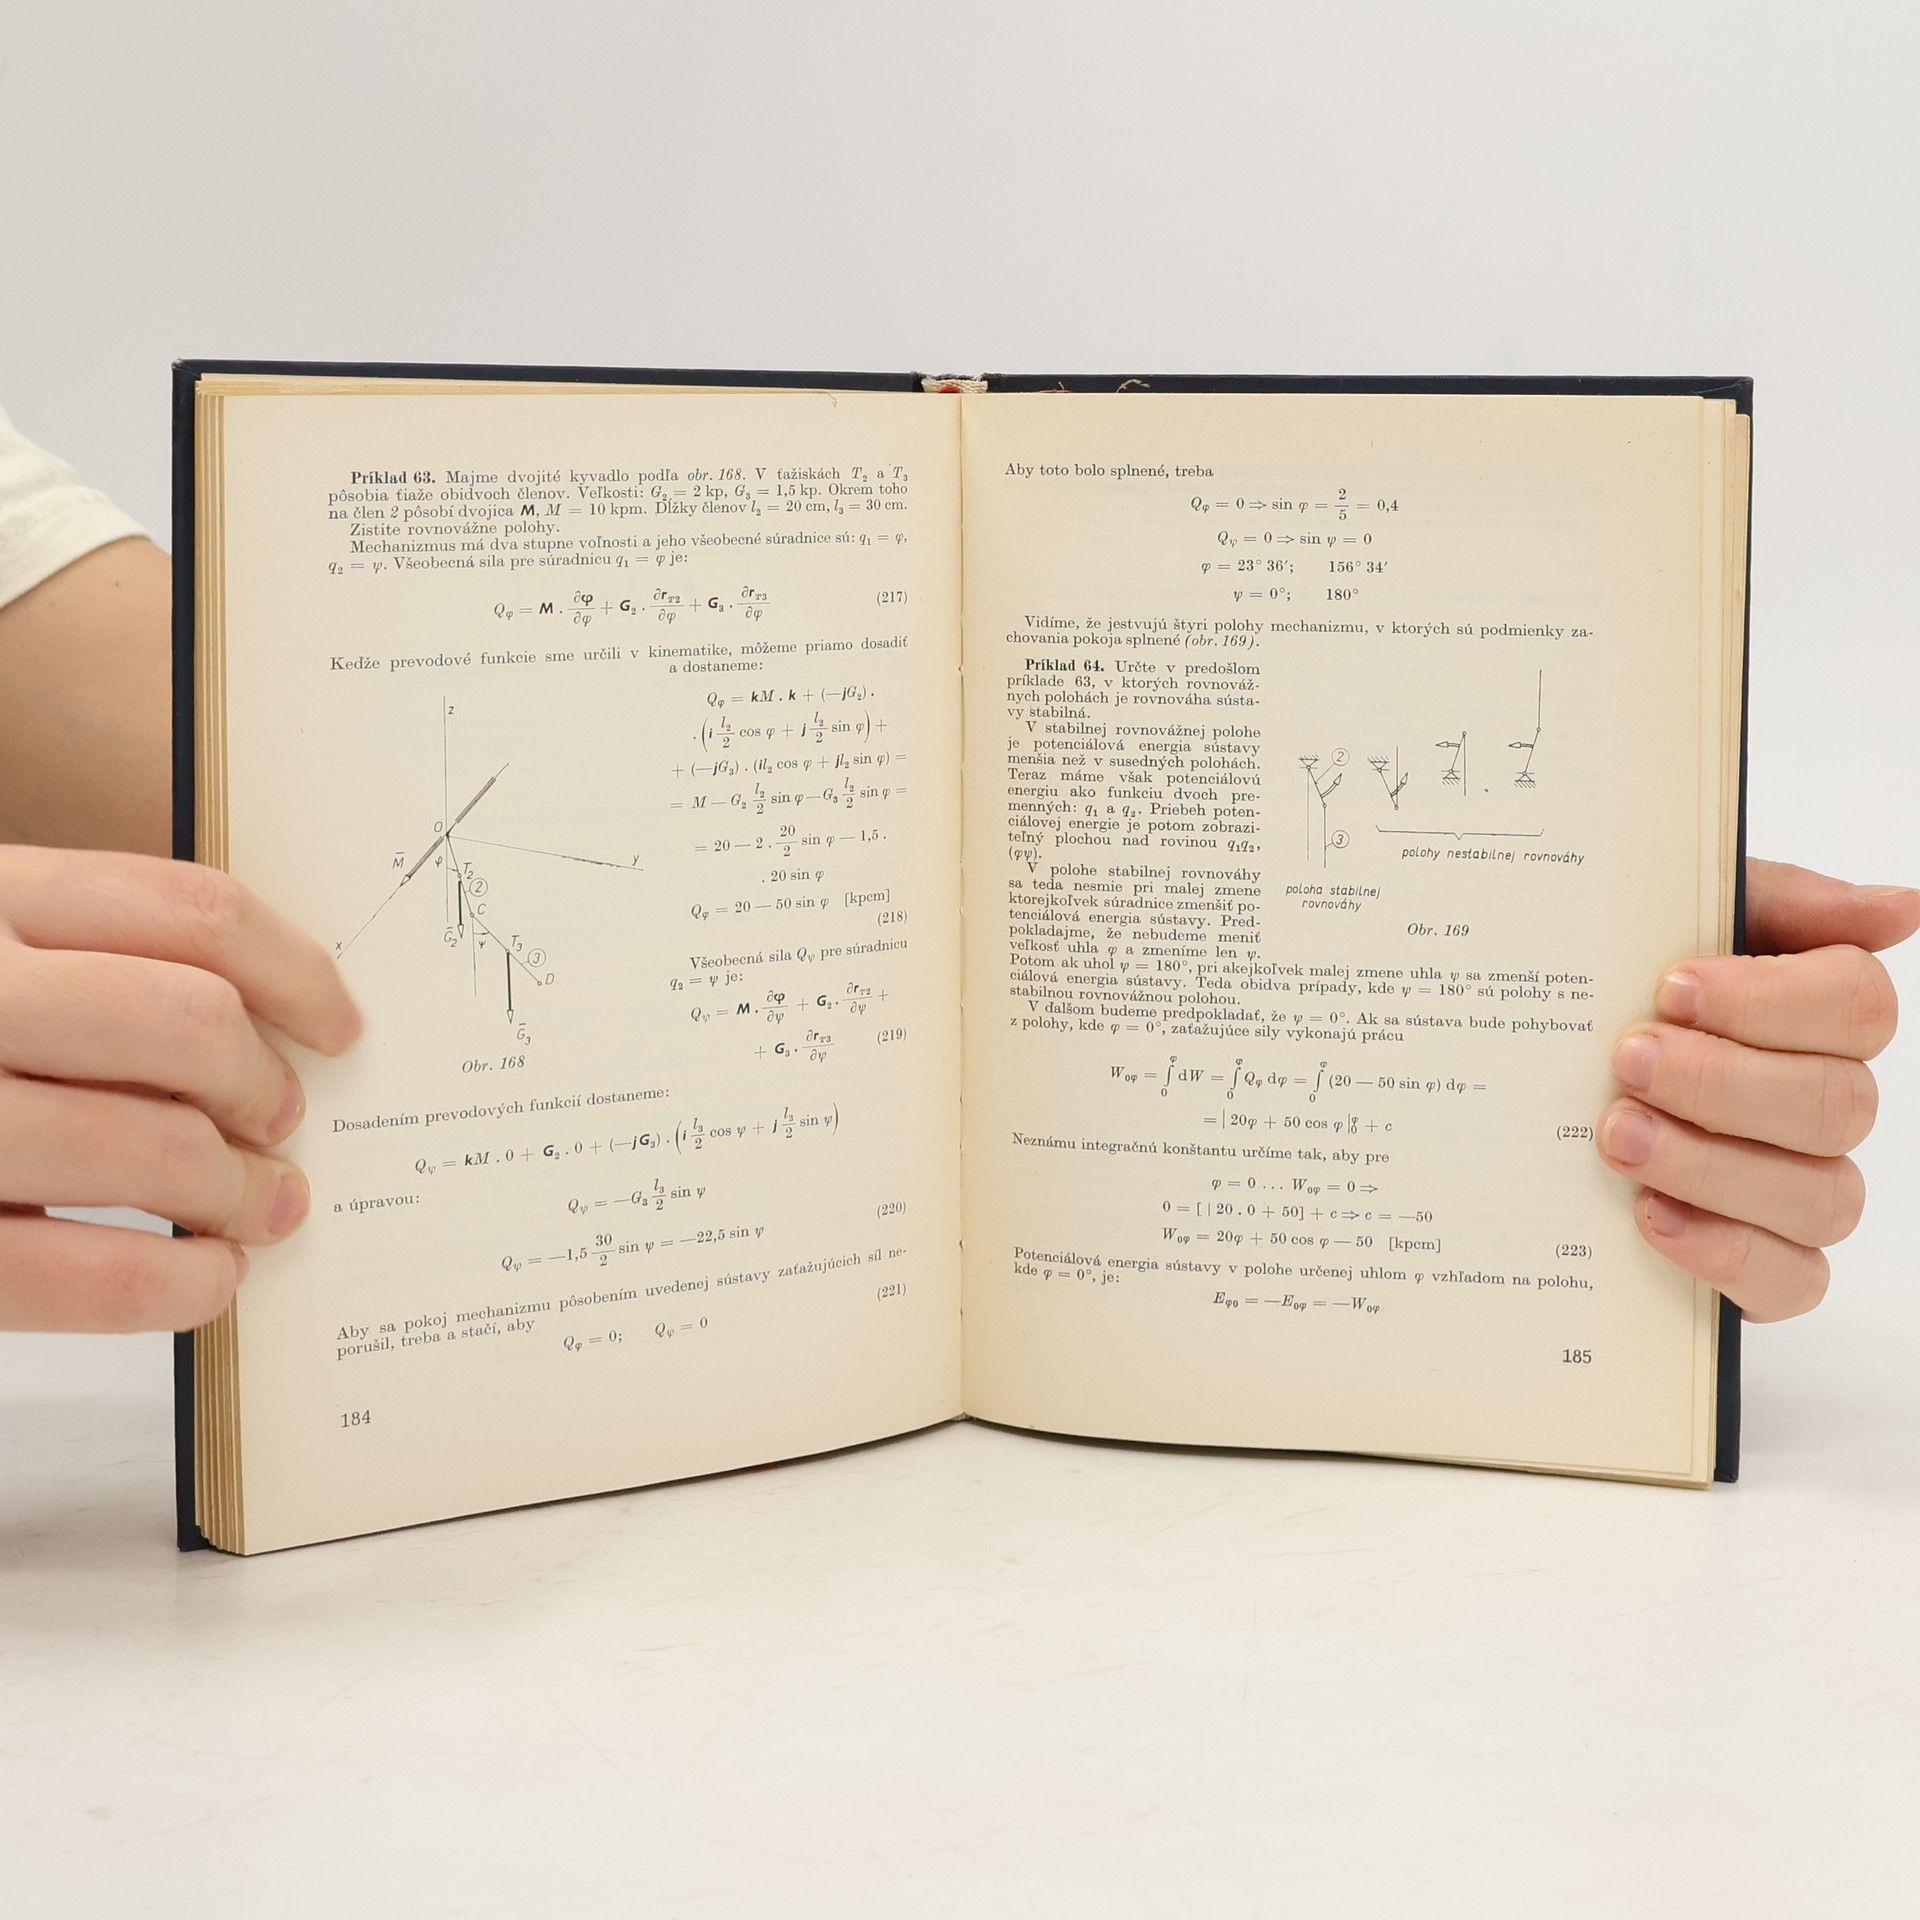 Príklad 63. Majme dvojité kyvadlo podľa obr. 168. V ťažiskách T₂ a T₃
pôsobia tiaže obidvoch členov. Veľkosti: G₂ = 2 kp, G₃ = 1,5 kp. Okrem toho
na člen 2 pôsobí dvojica M, M = 10 kpm. Dĺžky členov l₂ = 20 cm, l₃ = 30 cm.
Zistite rovnovážne polohy.
Mechanizmus má dva stupne voľnosti a jeho všeobecné súradnice sú: q₁ = φ,
q₂ = ψ. Všeobecná sila pre súradnicu q₁ = φ je:
Qφ = M . ∂φ/∂φ + G₂ . ∂r_T2/∂φ + G₃ . ∂r_T3/∂φ (217)
Keďže prevodové funkcie sme určili v kinematike, môžeme priamo dosadiť
a dostaneme:
Qφ = kM . k + (—jG₂) .
. (i l₂/2 cos φ + j l₂/2 sin φ) +
+ (—jG₃) . (il₂ cos φ + jl₂ sin φ) =
= M — G₂ l₂/2 sin φ — G₃ l₂/2 sin φ =
= 20 — 2 . 20/2 sin φ — 1,5 .
. 20 sin φ
Qφ = 20 — 50 sin φ [kpcm]
(218)
z
O
M̄
φ
T₂
2
C
y
x
Ḡ₂
ψ
T₃
3
D
Ḡ₃
Obr. 168
Všeobecná sila Qψ pre súradnicu
q₂ = ψ je:
Qψ = M . ∂φ/∂ψ + G₂ . ∂r_T2/∂ψ +
+ G₃ . ∂r_T3/∂ψ (219)
Dosadením prevodových funkcií dostaneme:
Qψ = kM . 0 + G₂ . 0 + (—jG₃) . (i l₃/2 cos ψ + j l₃/2 sin ψ)
a úpravou:
Qψ = —G₃ l₃/2 sin ψ (220)
Qψ = —1,5 30/2 sin ψ = —22,5 sin ψ
Aby sa pokoj mechanizmu pôsobením uvedenej sústavy zaťažujúcich síl ne-
porušil, treba a stačí, aby (221)
Qφ = 0; Qψ = 0
184
Aby toto bolo splnené, treba
Qφ = 0 ⇒ sin φ = 2/5 = 0,4
Qψ = 0 ⇒ sin ψ = 0
φ = 23° 36′; 156° 34′
ψ = 0°; 180°
Vidíme, že jestvujú štyri polohy mechanizmu, v ktorých sú podmienky za-
chovania pokoja splnené (obr. 169).
Príklad 64. Určte v predošlom
príklade 63, v ktorých rovnováž-
nych polohách je rovnováha sústa-
vy stabilná.
V stabilnej rovnovážnej polohe
je potenciálová energia sústavy
menšia než v susedných polohách.
Teraz máme však potenciálovú
energiu ako funkciu dvoch pre-
menných: q₁ a q₂. Priebeh poten-
ciálovej energie je potom zobrazi-
teľný plochou nad rovinou q₁q₂,
(φψ).
V polohe stabilnej rovnováhy
sa teda nesmie pri malej zmene
ktorejkoľvek súradnice zmenšiť po-
tenciálová energia sústavy. Pred-
pokladajme, že nebudeme meniť
veľkosť uhla φ a zmeníme len ψ.
2
3
polohy nestabilnej rovnováhy
poloha stabilnej
rovnováhy
Obr. 169
Potom ak uhol ψ = 180°, pri akejkoľvek malej zmene uhla ψ sa zmenší poten-
ciálová energia sústavy. Teda obidva prípady, kde ψ = 180° sú polohy s ne-
stabilnou rovnovážnou polohou.
V ďalšom budeme predpokladať, že ψ = 0°. Ak sa sústava bude pohybovať
z polohy, kde φ = 0°, zaťažujúce sily vykonajú prácu
W₀φ = ∫₀^φ dW = ∫₀^φ Qφ dφ = ∫₀^φ (20 — 50 sin φ) dφ =
= | 20φ + 50 cos φ |₀^φ + c (222)
Neznámu integračnú konštantu určíme tak, aby pre
φ = 0 ... W₀φ = 0 ⇒
0 = [ | 20 . 0 + 50] + c ⇒ c = —50
W₀φ = 20φ + 50 cos φ — 50 [kpcm] (223)
Potenciálová energia sústavy v polohe určenej uhlom φ vzhľadom na polohu,
kde φ = 0°, je:
Eφ₀ = —E₀φ = —W₀φ
185